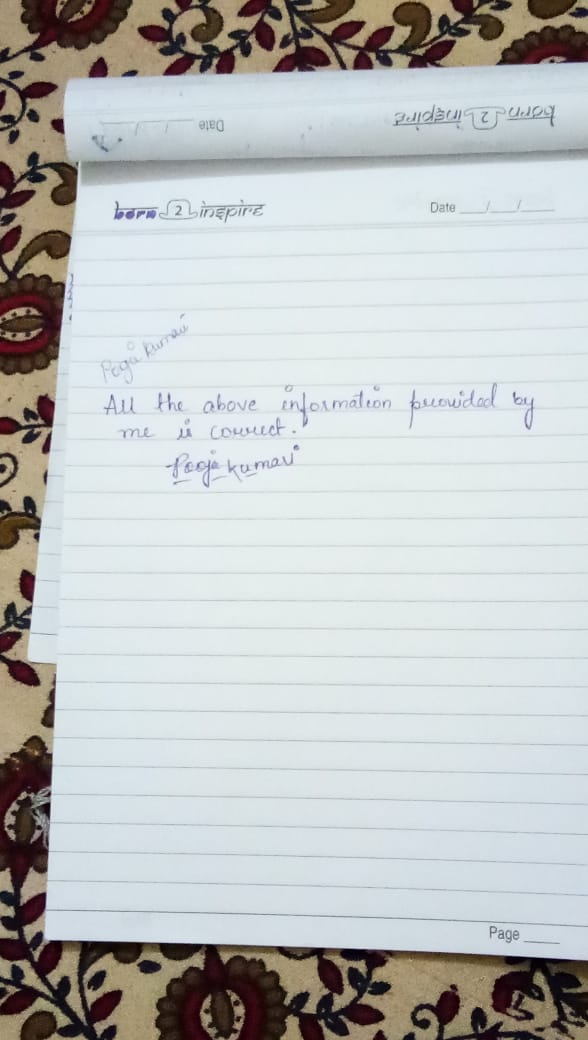 born 2 inspire
Date
born 2 inspire
Date __/__/__
Pooja Kumari
All the above information provided by
me is correct.
Pooja kumari
Page ___